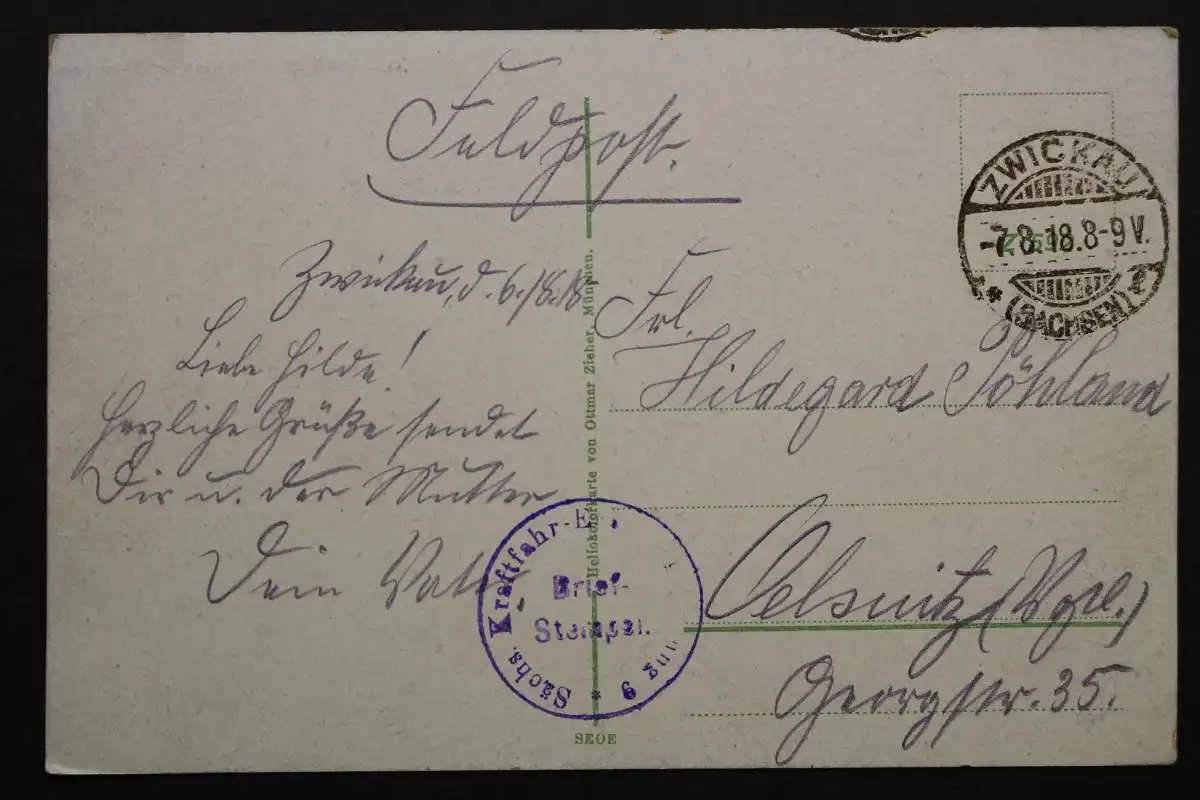 Feldpost.
Zwickau, d. 6./8.18
Liebe Hilde!
Herzliche Grüße sendet
Dir u. der Mutter
Dein Vater
Frl.
Hildegard Pöhland
Oelsnitz (Vgtl.)
Georgstr. 35.
ZWICKAU
-7.8.18.8-9V.
* (SACHSEN)
Heliokolorkarte von Ottmar Zieher, München.
Sächs. Kraftfahr-E
ung 6 *
Brief-
Stempel.
SEOE